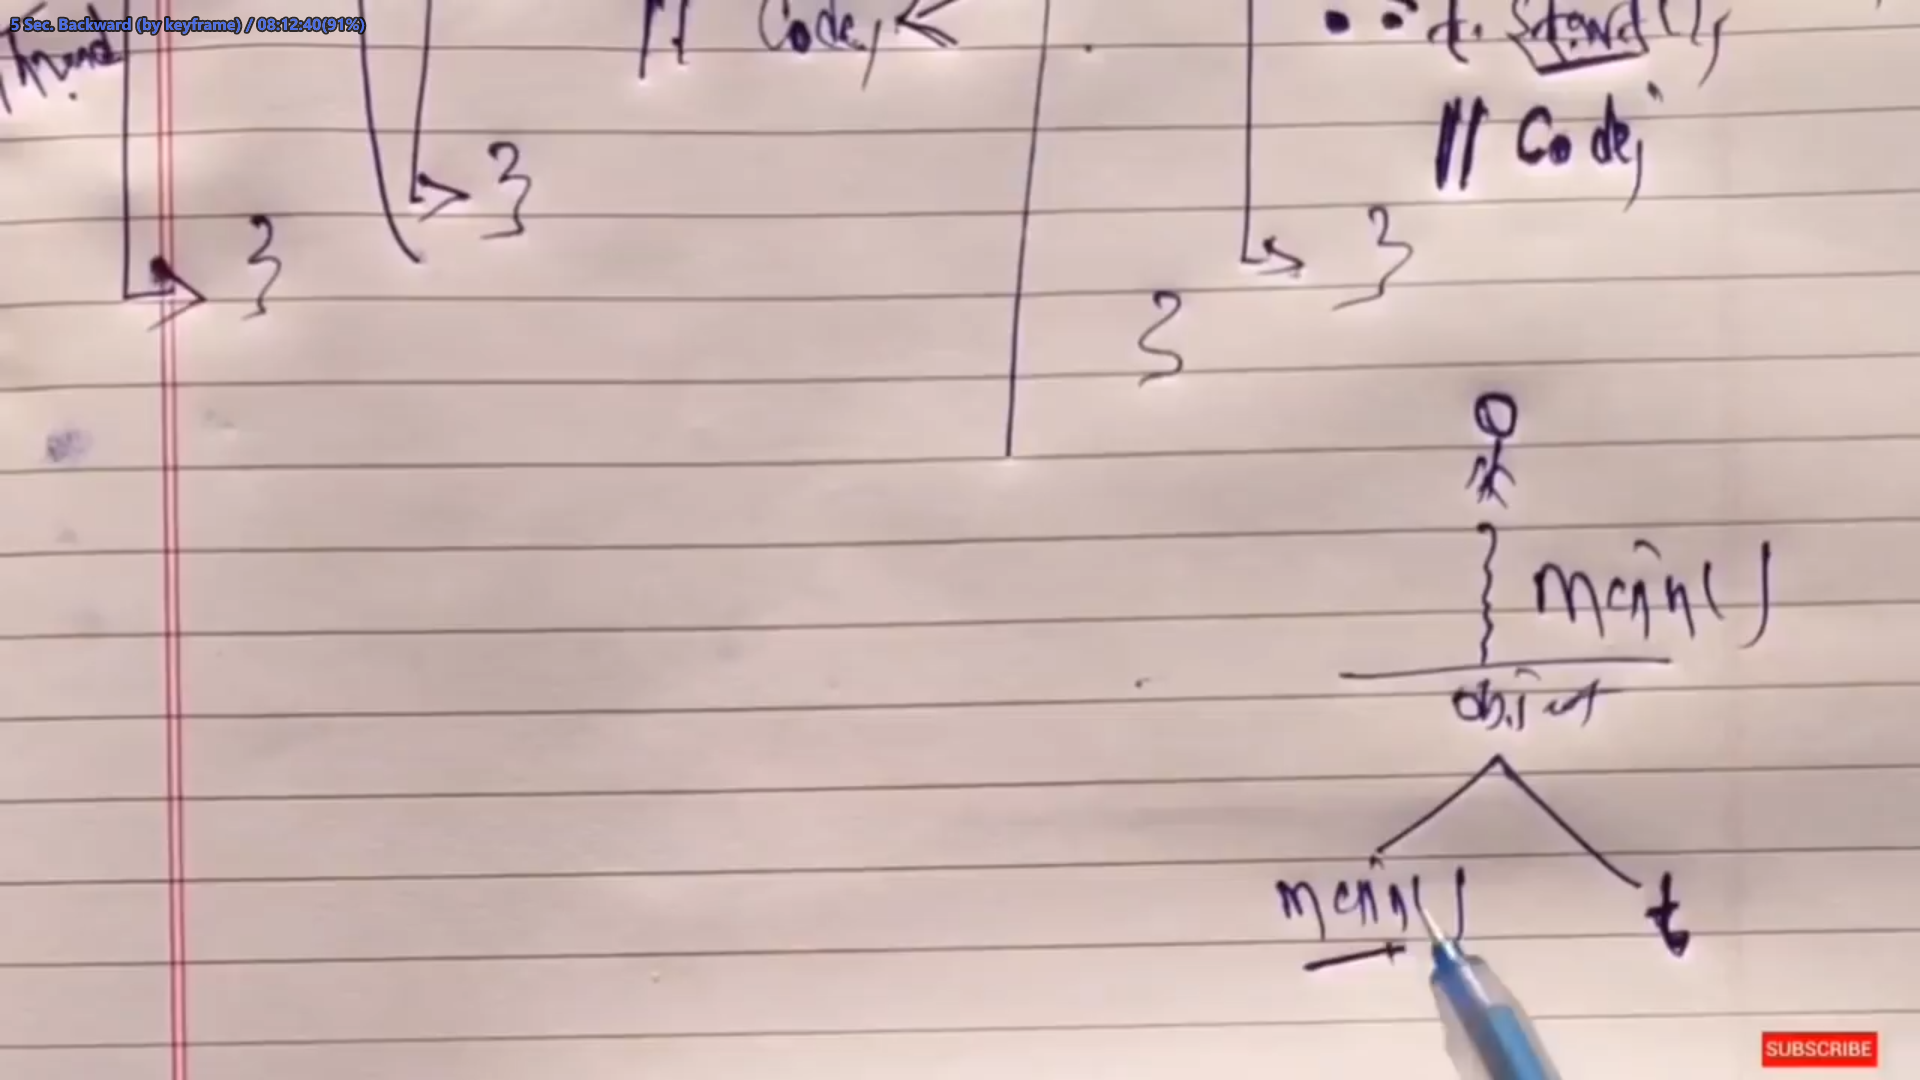 5 Sec. Backward (by keyframe) / 08:12:40(91%)
Thread
// Code;
}
}
t. start();
// Code;
}
}
main()
object
main()
t
SUBSCRIBE